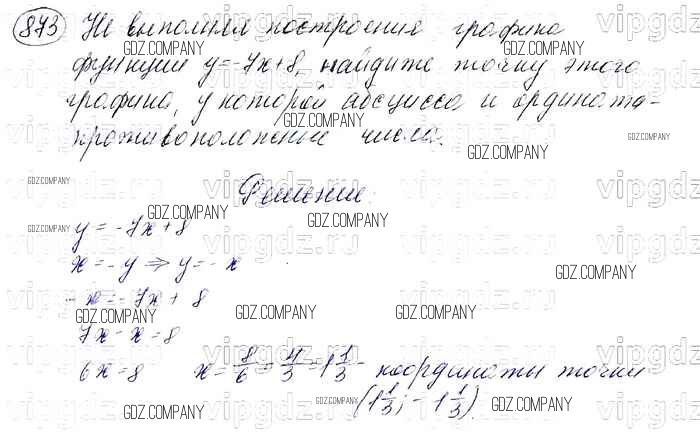 873 Не выполняя построения графика
функции y=-7x+8, найдите точку этого
графика, у которой абсцисса и ордината-
противоположные числа.
Решение:
y = -7x+8
x = -y ⇒ y = -x
-x = -7x + 8
7x - x = 8
6x = 8 x = 8/6 = 4/3 = 1 1/3 - координаты точки
(1 1/3; -1 1/3)
GDZ.COMPANY
vipgdz.ru